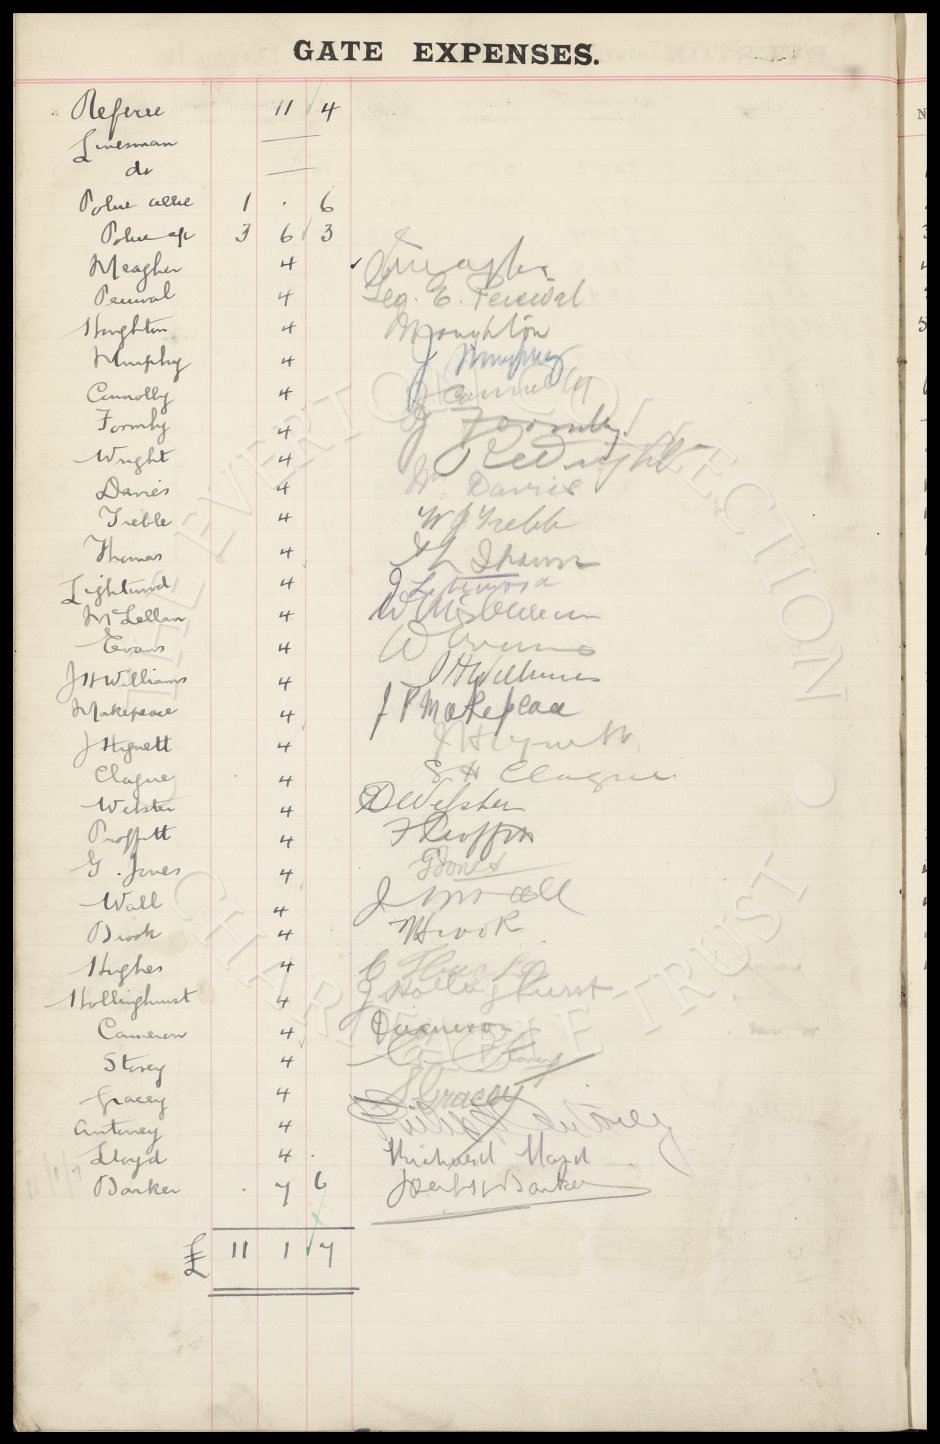 GATE EXPENSES.
Referee 11 4
Linesman —
do —
Police 1 . 6
Police 3 6 3
Meagher 4
Percival 4 Geo. E. Percival
Houghton 4 Houghton
Murphy 4 J Murphy
Connolly 4 J Connolly
Formby 4 J Formby.
Wright 4 R Wright
Davies 4 Wm Davies
Treble 4 W J Treble
Thomas 4
Lightwood 4
McLellan 4
Evans 4 W Evans
J H Williams 4 J H Williams
Makepeace 4 J P Makepeace
J Hignett 4 J Hignett
Clague 4 S H Clague.
Webster 4 D Webster
Proffitt 4 F Proffitt
G. Jones 4 G Jones
Wall 4 J Wall
Brook 4 H Brook
Hughes 4 Hughes
Hollinghurst 4 J Hollinghurst
Cameron 4 D Cameron
Storey 4 Storey
Gracey 4 S Gracey
Antoney 4 Antoney
Lloyd 4 . Richard Lloyd
Barker . 7 6 Barker
£ 11 1 7
THE EVERTON COLLECTION
CHARITABLE TRUST